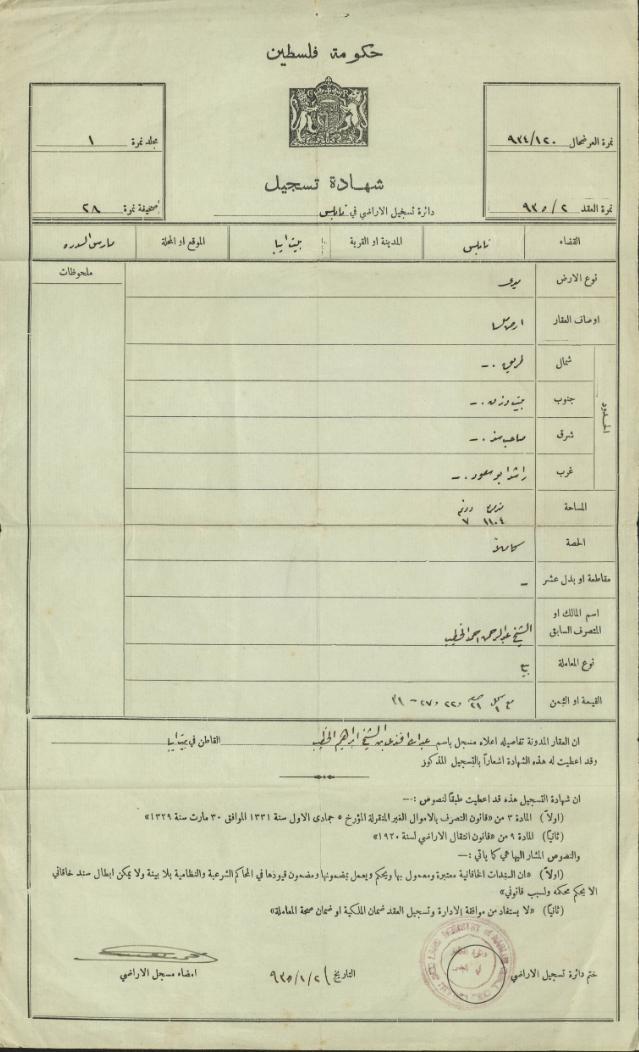 حكومة فلسطين
نمرة العرضحال ٩٣٤/١٢٠
مجلد نمرة ١
شهادة تسجيل
نمرة العقد ٩٣٥/٢
صحيفة نمرة ٢٨
دائرة تسجيل الاراضي في نابلس
القضاء نابلس المدينة او القرية بيت ايبا الموقع او المحلة مارس السدره
ملحوظات
نوع الارض ميري
اوصاف العقار ارض
الحدود
شمال طريق .-
جنوب .-
شرق .-
غرب راشد ابو سعود .-
المساحة دونم
١١٠٤ ٧
الحصة كاملاً
مقاطعة او بدل عشر -
اسم المالك او
المتصرف السابق الشيخ عبدالرحمن احمد الخطيب
نوع المعاملة بيع
القيمة او الثمن
ان العقار المدونة تفاصيله اعلاه مسجل باسم عبدالله افندي ابن الشيخ ابراهيم الخطيب القاطن في بيت ايبا
وقد اعطيت له هذه الشهادة اشعاراً بالتسجيل المذكور
ان شهادة التسجيل هذه قد اعطيت طبقاً لنصوص :—
(اولاً) المادة ٣ من «قانون التصرف بالاموال الغير المنقولة المؤرخ ٥ جمادى الاول سنة ١٣٣١ الموافق ٣٠ مارت سنة ١٣٢٩»
(ثانياً) المادة ٩ من «قانون انتقال الاراضي لسنة ١٩٢٠»
والنصوص المشار اليها هي كما يأتي :—
(اولاً) «ان السندات الخاقانية معتبرة ومعمول بها ويحكم ويعمل بمضمونها ومضمون قيودها في المحاكم الشرعية والنظامية بلا بينة ولا يمكن ابطال سند خاقاني
الا بحكم محكمه ولسبب قانوني»
(ثانياً) «لا يستفاد من موافقة الادارة وتسجيل العقد ضمان الملكية او ضمان صحة المعاملة»
ختم دائرة تسجيل الاراضي
التاريخ ٩٣٥/١/٢
امضاء مسجل الاراضي